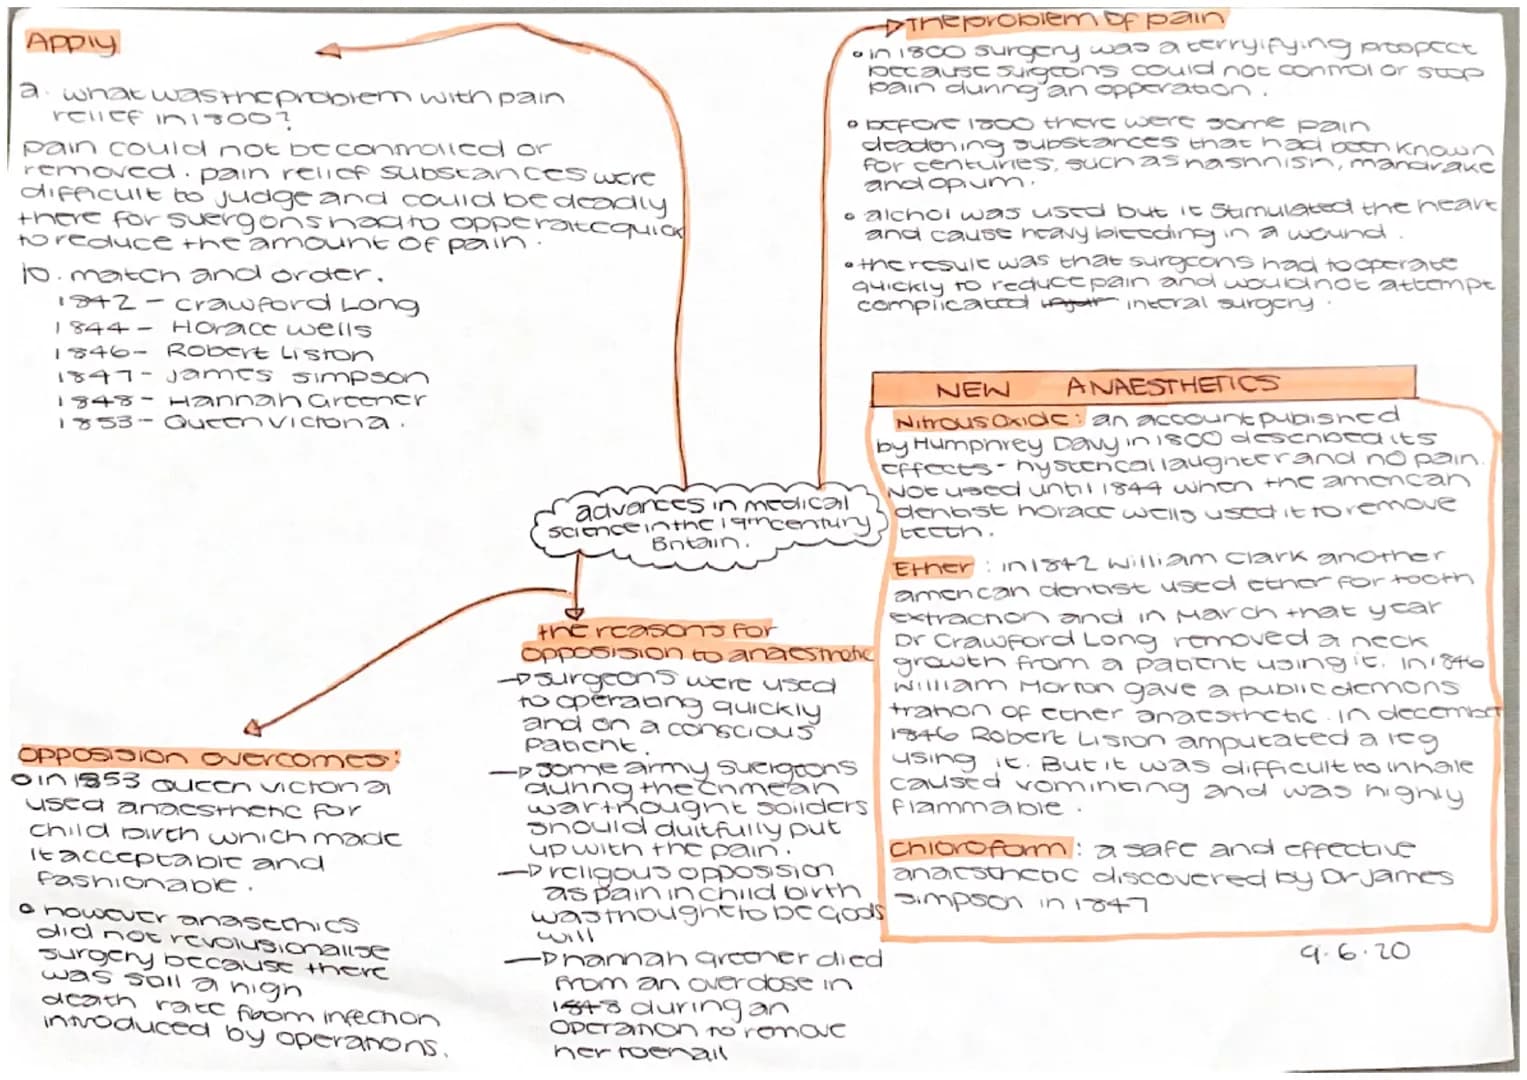 Apply
a. what was the problem with pain
relief in 1800?
pain could not be controlled or
removed. pain relief substances were
difficult to judge and could be deadly
there for suergons had to opperate quick
to reduce the amount of pain.
10. match and order.
1842 - Crawford Long
1844 - Horace wells
1846 - Robert Liston
1847 - James simpson
1848 - Hannah Greener
1853 - Queen victoria.
The problem of pain
• in 1800 surgery was a terryifying propect
because surgeons could not control or stop
pain during an opperation.
• before 1800 there were some pain
deadening substances that had been known
for centuries, such as hashhish, mandrake
and opium.
• alchol was used but it stimulated the heart
and cause heavy bleeding in a wound.
• the result was that surgeons had to operate
quickly to reduce pain and would not attempt
complicated interal surgery.
NEW ANAESTHETICS
Nitrous Oxide: an account published
by Humphrey Davy in 1800 described its
effects - hysterical laughter and no pain.
Not used until 1844 when the american
dentist horace wells used it to remove
teeth.
Ether: in 1842 william Clark another
american dentist used ether for tooth
extraction and in March that year
Dr Crawford Long removed a neck
growth from a patient using it. in 1846
william Morton gave a public demons
tration of ether anaesthetic. in december
1846 Robert Liston amputated a leg
using it. But it was difficult to inhale
caused vominting and was highly
flammable.
Chloroform: a safe and effective
anaesthetic discovered by Dr James
simpson in 1847
9.6.20
advances in medical
science in the 19th century
Britain.
the reasons for
opposision to anaesthetic
→ surgeons were used
to operating quickly
and on a conscious
patient.
→ some army suergeons
during the crimean
war thought soilders
should duitfully put
up with the pain.
→ religous opposision
as pain in child birth
was thought to be Gods
will
→ hannah Greener died
from an overdose in
1848 during an
operation to remove
her toenail
opposision overcomes:
• in 1853 Queen victoria
used anaesthetic for
child birth which made
it acceptable and
fashionable.
• however anasethics
did not revolusionalise
surgery because there
was still a high
death rate from infection
introduced by operations.